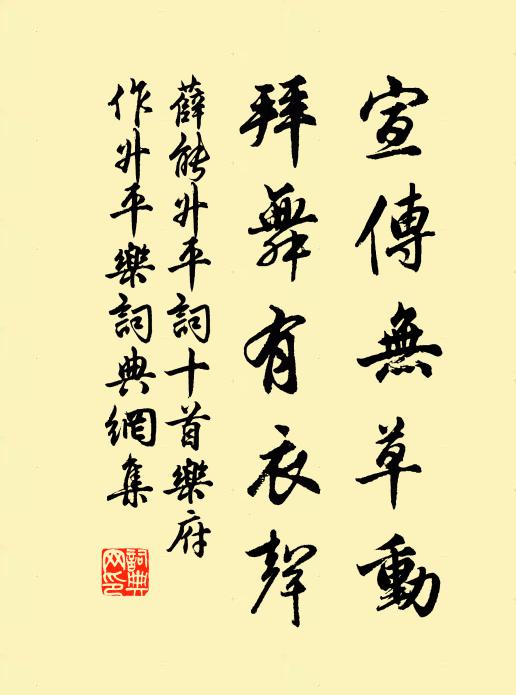 宣傳無草動
拜舞有衣聲
薛能升平詞十首樂府
作升平樂詞典網集
詞典网印